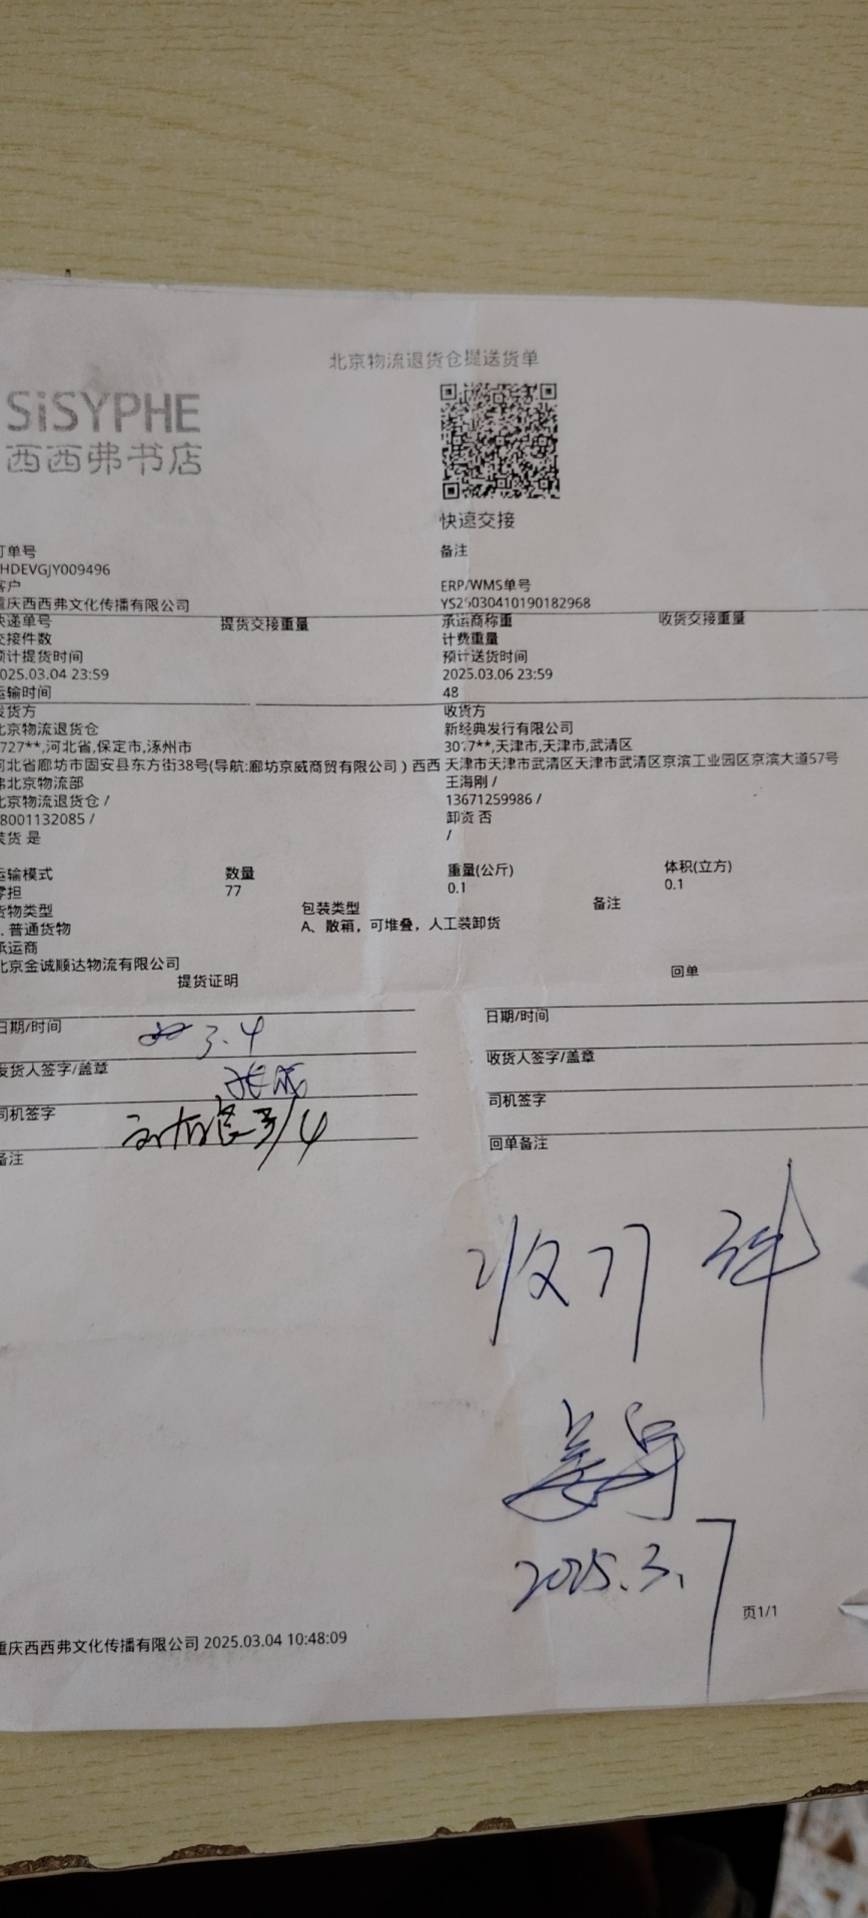 北京物流退货仓提送货单
SiSYPHE
西西弗书店
快速交接
单号
备注
HDEVGJY009496
客户
ERP/WMS单号
重庆西西弗文化传播有限公司
YS25030410190182968
快递单号
提货交接重量
承运商称重
收货交接重量
交接件数
计费重量
预计提货时间
预计送货时间
025.03.04 23:59
2025.03.06 23:59
运输时间
48
发货方
收货方
北京物流退货仓
新经典发行有限公司
727**,河北省,保定市,涿州市
3017**,天津市,天津市,武清区
河北省廊坊市固安县东方街38号(导航:廊坊京威商贸有限公司)西西
天津市天津市武清区天津市武清区京滨工业园区京滨大道57号
弗北京物流部
王海刚 /
北京物流退货仓 /
13671259986 /
8001132085 /
卸货 否
装货 是
/
运输模式
数量
重量(公斤)
体积(立方)
零担
77
0.1
0.1
货物类型
包装类型
备注
. 普通货物
A、散箱，可堆叠，人工装卸货
承运商
北京金诚顺达物流有限公司
提货证明
回单
日期/时间
3.4
日期/时间
发货人签字/盖章
收货人签字/盖章
司机签字
3/4
司机签字
备注
回单备注
收77件
2025.3.7
页1/1
重庆西西弗文化传播有限公司 2025.03.04 10:48:09